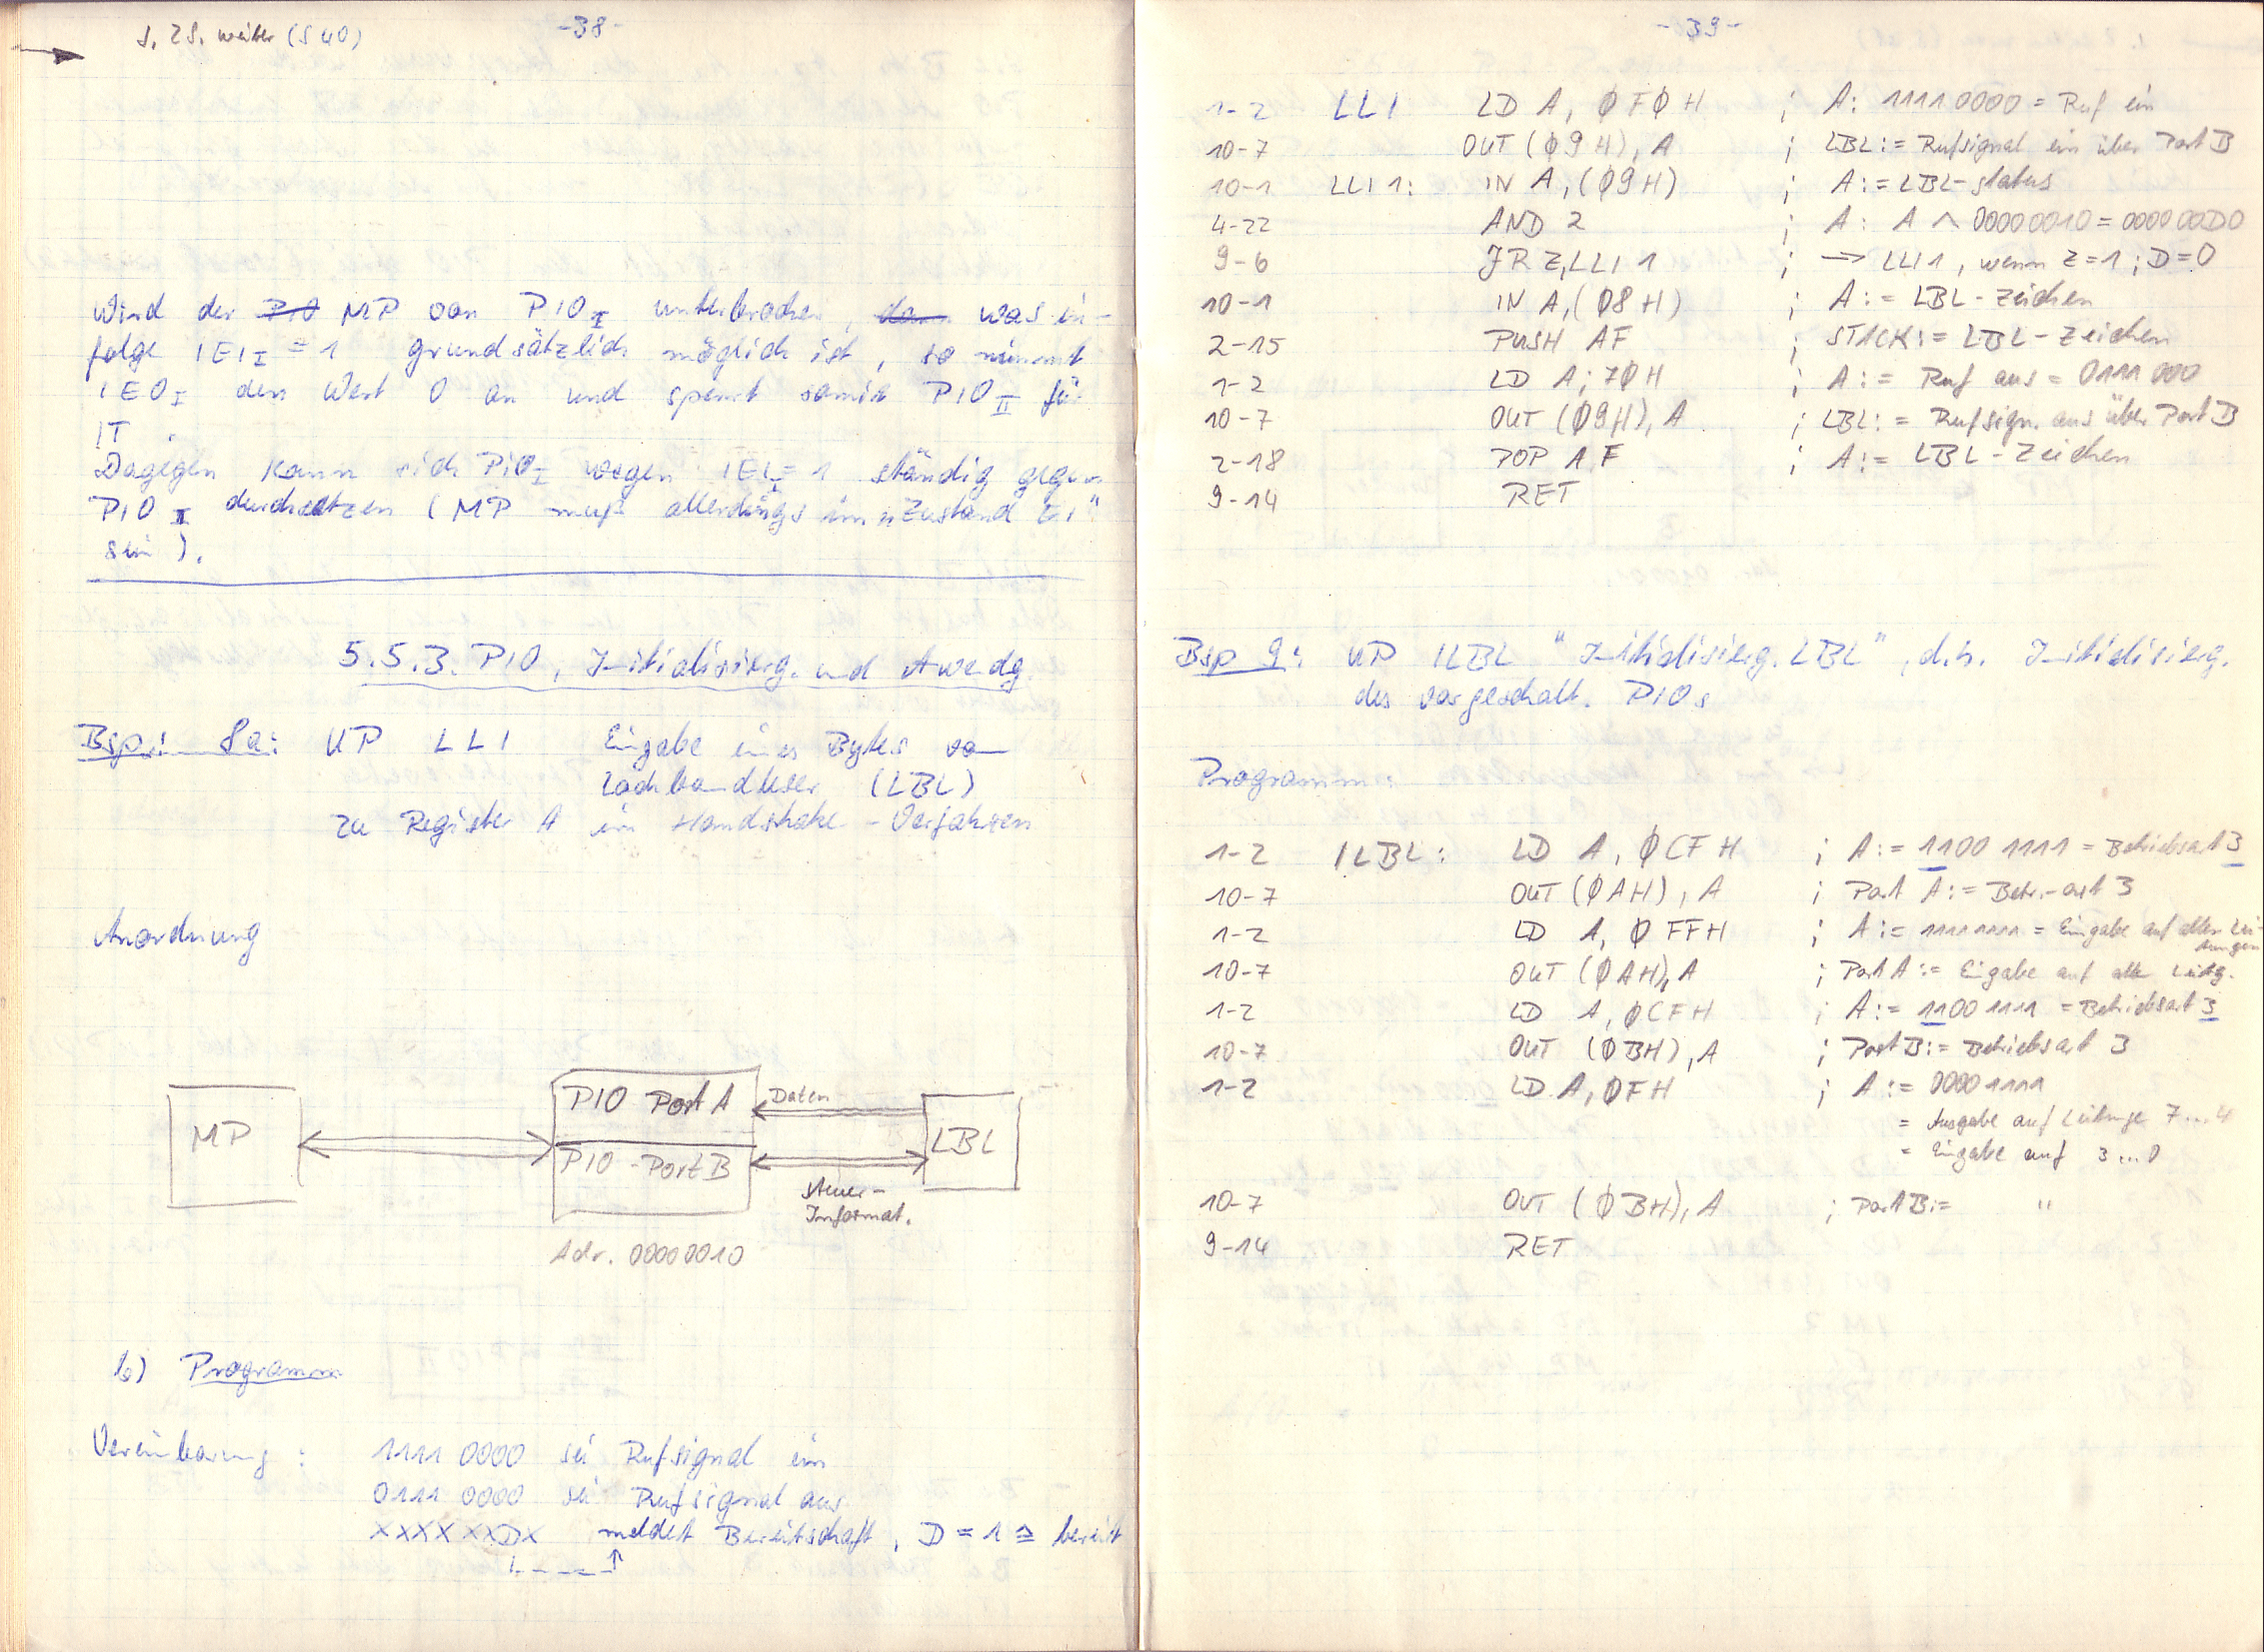 s. 2S. weiter (S 40)
-38-
Wird der PIO MP von PIO I unterbrochen, dann was in-
folge IEI I = 1 grundsätzlich möglich ist, so nimmt
IEO I den Wert 0 an und sperrt somit PIO II für
IT.
Dagegen kann sich PIO I wegen IEI I = 1 ständig gegen
PIO II durchsetzen (MP muß allerdings im "Zustand EI"
sein).
5.5.3. PIO, Initialisierg. und Anwendg.
Bsp. 8a: UP LLI Eingabe eines Bytes von
Lochbandleser (LBL)
zu Register A im Handshake-Verfahren
Anordnung
MP
PIO Port A
PIO-Port B
Daten
Steuer-
Informat.
LBL
Adr. 00000010
b) Programm
Vereinbarung: 1111 0000 sei Rufsignal ein
0111 0000 sei Rufsignal aus
XXXX XXDX meldet Bereitschaft, D = 1 ≙ bereit
-39-
1-2 LLI LD A, ØFØH ; A: 1111 0000 = Ruf ein
10-7 OUT (Ø9H), A ; LBL:= Rufsignal ein über Port B
10-1 LLI1: IN A, (Ø9H) ; A:= LBL-status
4-22 AND 2 ; A: A ∧ 00000010 = 000000D0
9-6 JR Z, LLI1 ; → LLI1, wenn Z=1; D=0
10-1 IN A, (Ø8H) ; A:= LBL-Zeichen
2-15 PUSH AF ; STACK:= LBL-Zeichen
1-2 LD A; 7ØH ; A:= Ruf aus = 0111 000
10-7 OUT (Ø9H), A ; LBL:= Rufsign. aus über Port B
2-18 POP AF ; A:= LBL-Zeichen
9-14 RET
Bsp 9: UP ILBL "Initialisierg. LBL", d.h. Initialisierg.
des vorgeschalt. PIOs
Programm:
1-2 ILBL: LD A, ØCFH ; A:= 1100 1111 = Betriebsart 3
10-7 OUT (ØAH), A ; Port A:= Betr.-art 3
1-2 LD A, ØFFH ; A:= 11111111 = Eingabe auf allen Lei-
tungen
10-7 OUT (ØAH), A ; Port A:= Eingabe auf alle Leitg.
1-2 LD A, ØCFH ; A:= 1100 1111 = Betriebsart 3
10-7 OUT (ØBH), A ; Port B:= Betriebsart 3
1-2 LD A, ØFH ; A:= 0000 1111
= Ausgabe auf Leitunge 7...4
= Eingabe auf 3...0
10-7 OUT (ØBH), A ; Port B:= "
9-14 RET